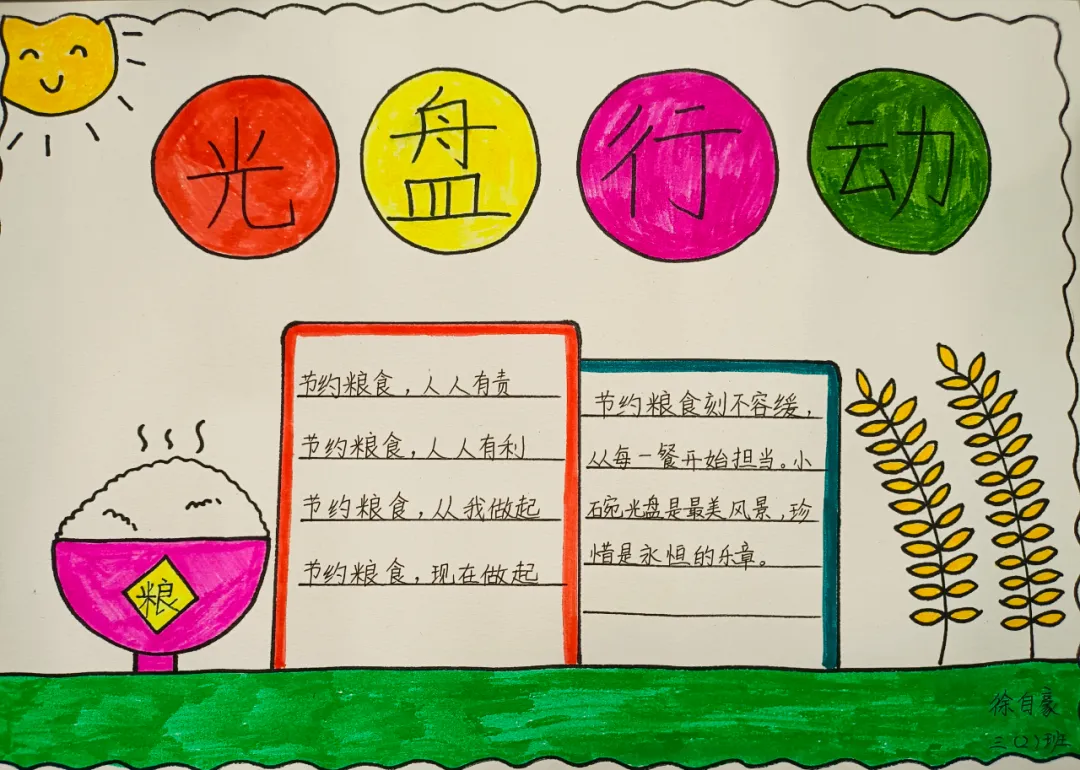 光盘行动
节约粮食，人人有责
节约粮食，人人有利
节约粮食，从我做起
节约粮食，现在做起
节约粮食刻不容缓，
从每一餐开始担当。小
碗光盘是最美风景，珍
惜是永恒的乐章。
粮
徐自豪
三〇1班